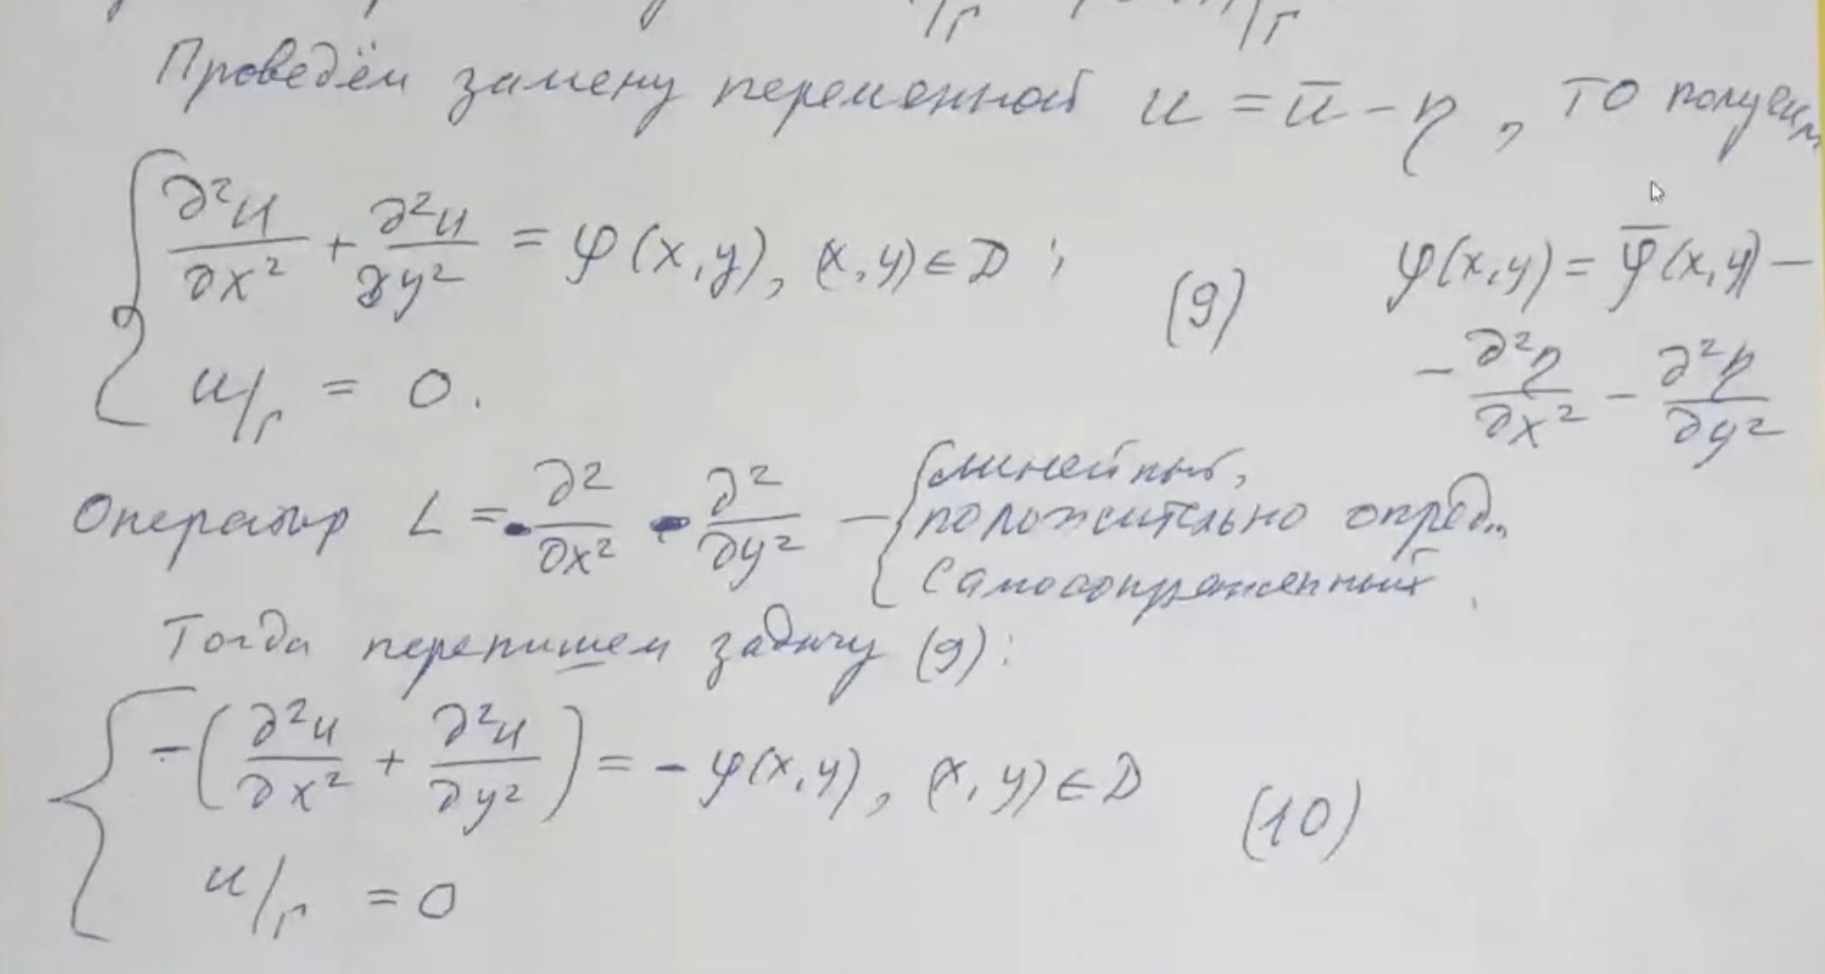 /Г /Г
Проведём замену переменной u = ū - η, то получим
∂²u/∂x² + ∂²u/∂y² = φ(x,y), (x,y) ∈ D ;
u/Г = 0.
(9)
φ(x,y) = φ̄(x,y) -
- ∂²η/∂x² - ∂²η/∂y²
Оператор L = - ∂²/∂x² - ∂²/∂y² - { линейный,
положительно опред.,
самосопряженный.
Тогда перепишем задачу (9):
-(∂²u/∂x² + ∂²u/∂y²) = - φ(x,y), (x,y) ∈ D
u/Г = 0
(10)